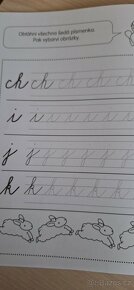 Obtáhni všechna šedá písmenka.
Pak vybarvi obrázky.
ch ch ch ch ch ch
i i i i i i i i
j j j j j j j j
k k k k k k k